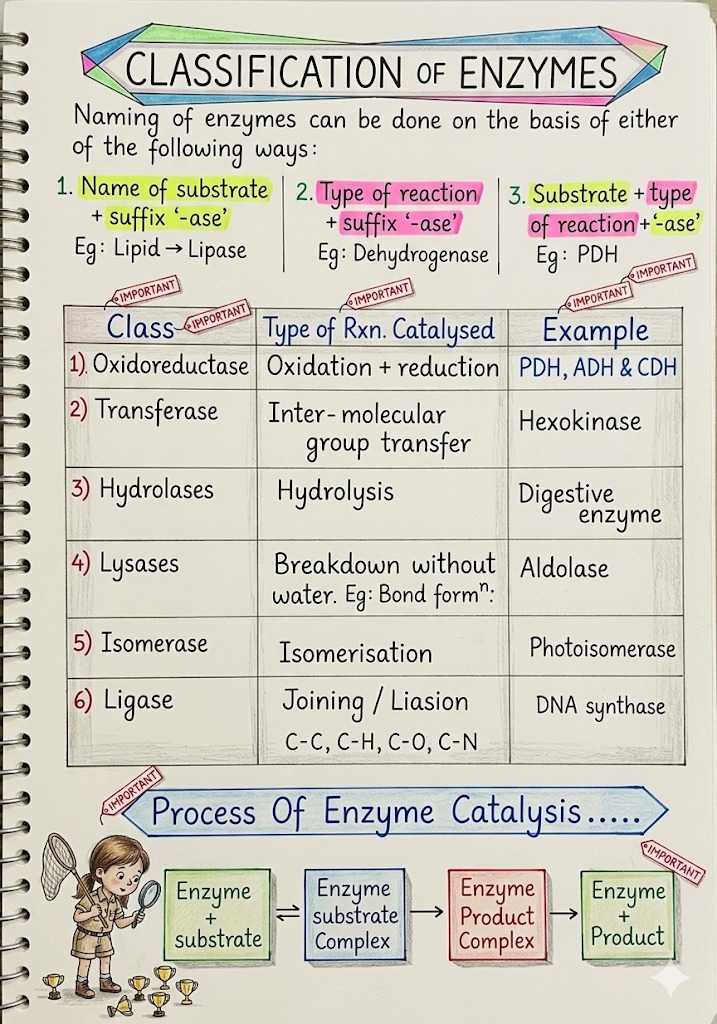 CLASSIFICATION OF ENZYMES
Naming of enzymes can be done on the basis of either
of the following ways:
1. Name of substrate
+ suffix ‘-ase’
Eg: Lipid → Lipase
2. Type of reaction
+ suffix ‘-ase’
Eg: Dehydrogenase
3. Substrate + type
of reaction + ‘-ase’
Eg: PDH
IMPORTANT
IMPORTANT
IMPORTANT
IMPORTANT
IMPORTANT
Class
Type of Rxn. Catalysed
Example
1). Oxidoreductase
Oxidation + reduction
PDH, ADH & CDH
2) Transferase
Inter-molecular
group transfer
Hexokinase
3) Hydrolases
Hydrolysis
Digestive
enzyme
4) Lysases
Breakdown without
water. Eg: Bond formⁿ:
Aldolase
5) Isomerase
Isomerisation
Photoisomerase
6) Ligase
Joining / Liasion
C-C, C-H, C-O, C-N
DNA synthase
IMPORTANT
Process Of Enzyme Catalysis.....
IMPORTANT
Enzyme
+
substrate
⇌
Enzyme
substrate
Complex
→
Enzyme
Product
Complex
→
Enzyme
+
Product